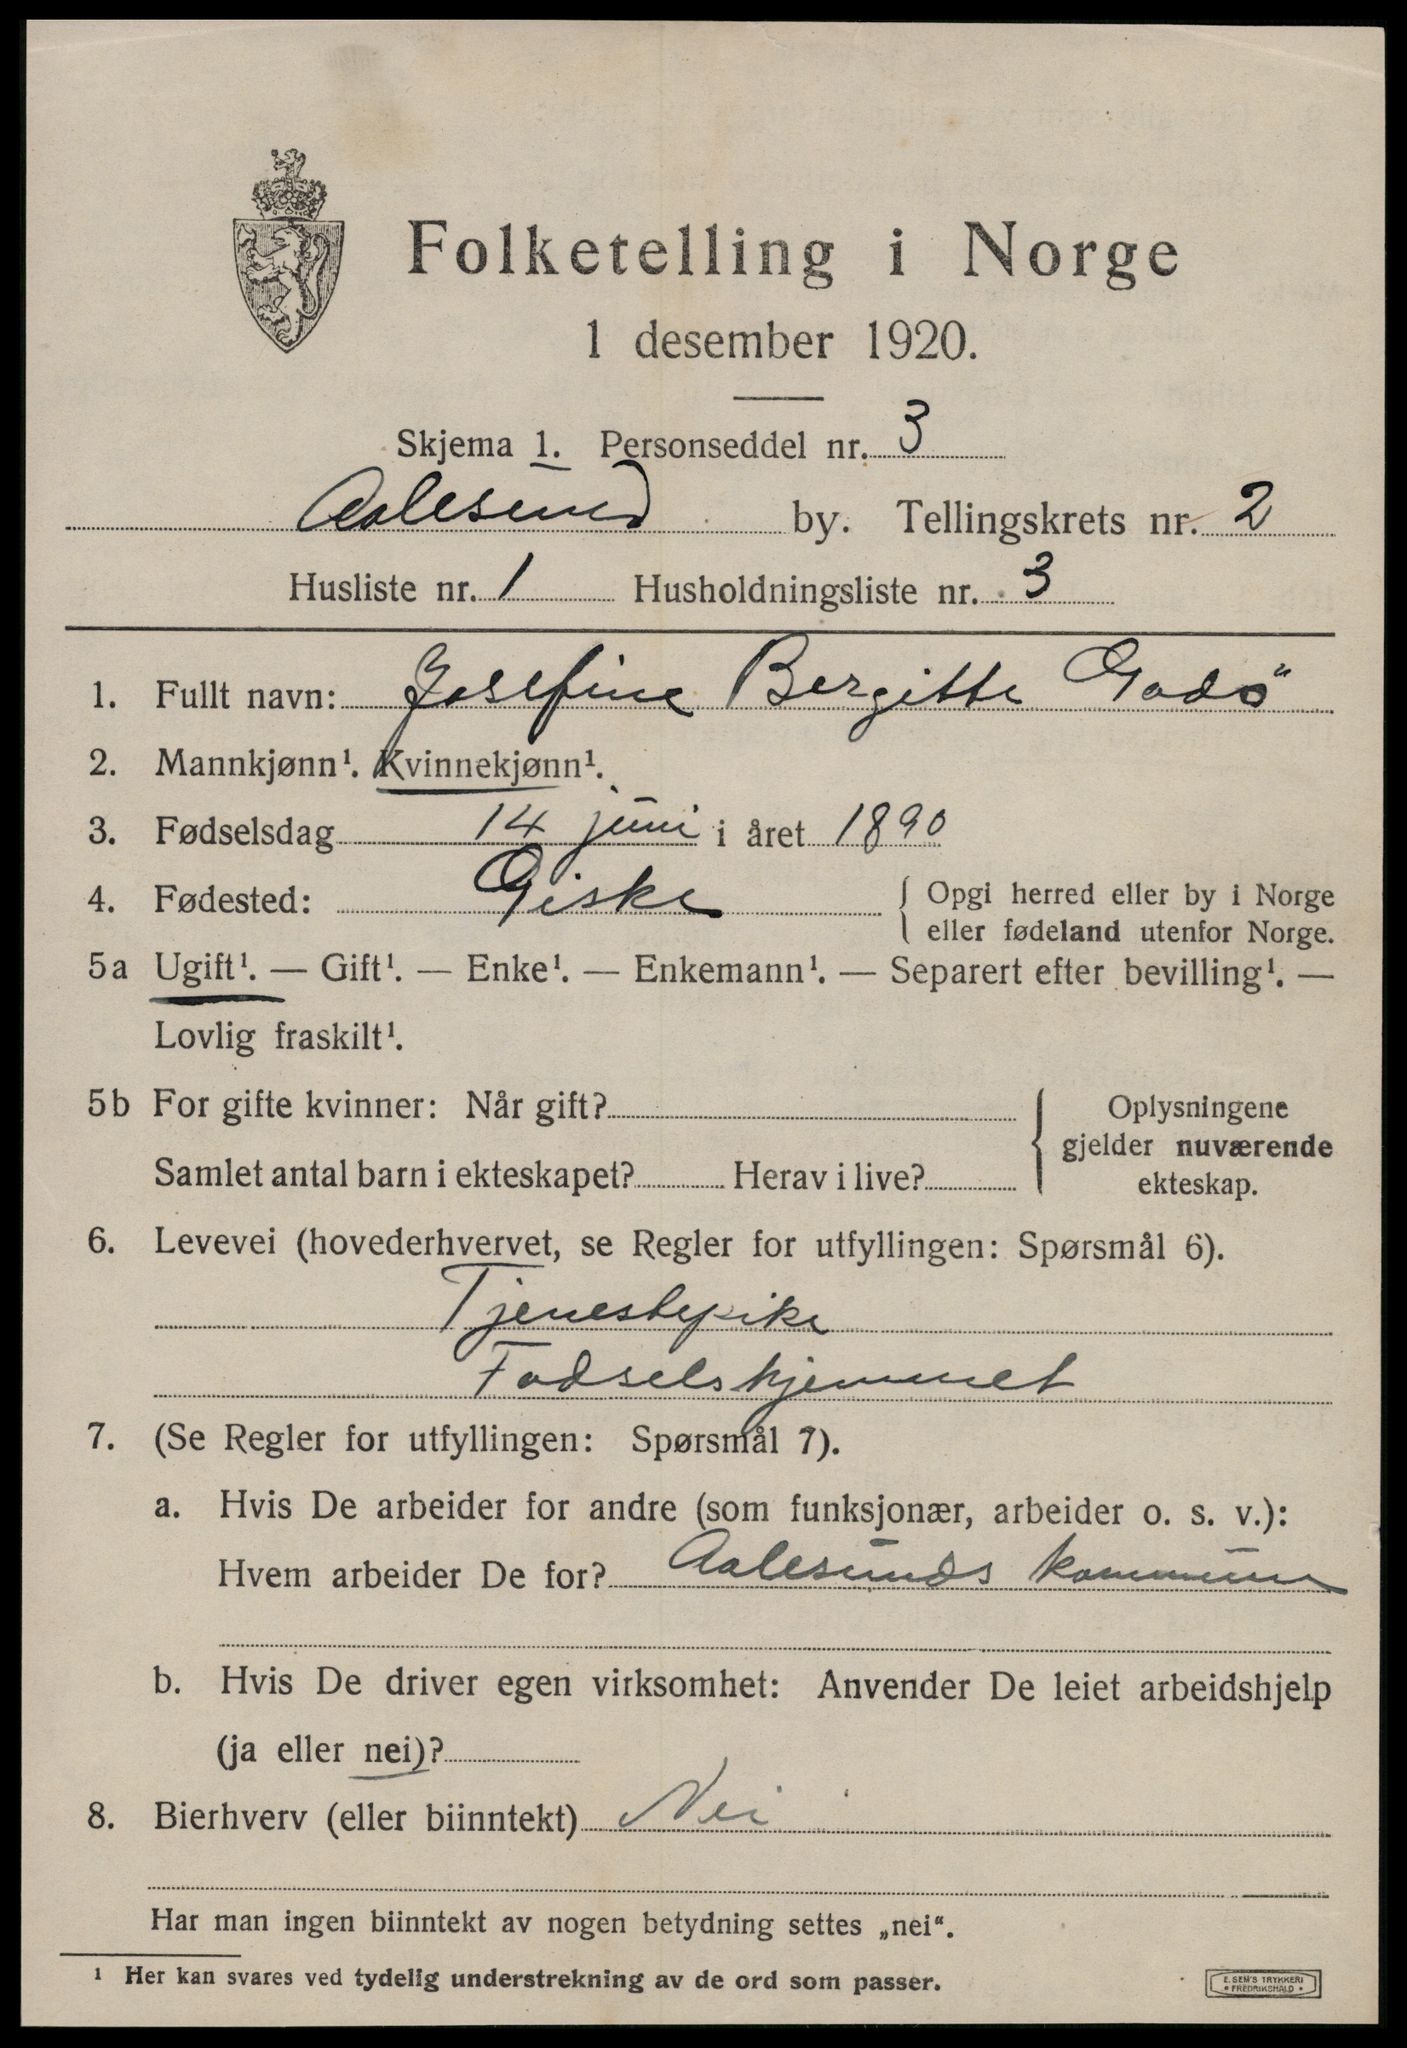 Folketelling i Norge
1 desember 1920.
Skjema 1. Personseddel nr. 3
Aalesund by. Tellingskrets nr. 2
Husliste nr. 1 Husholdningsliste nr. 3
1. Fullt navn: Josefine Bergitte Godö
2. Mannkjønn¹. Kvinnekjønn¹.
3. Fødselsdag 14 juni i året 1890
4. Fødested: Giske { Opgi herred eller by i Norge
eller fødeland utenfor Norge.
5a Ugift¹. — Gift¹. — Enke¹. — Enkemann¹. — Separert efter bevilling¹. —
Lovlig fraskilt¹.
5b For gifte kvinner: Når gift? { Oplysningene
gjelder nuværende
Samlet antal barn i ekteskapet? Herav i live? ekteskap.
6. Levevei (hovederhvervet, se Regler for utfyllingen: Spørsmål 6).
Tjenestepike
Fødselshjemmet
7. (Se Regler for utfyllingen: Spørsmål 7).
a. Hvis De arbeider for andre (som funksjonær, arbeider o. s. v.):
Hvem arbeider De for? Aalesunds kommune
b. Hvis De driver egen virksomhet: Anvender De leiet arbeidshjelp
(ja eller nei)?
8. Bierhverv (eller biinntekt) Nei
Har man ingen biinntekt av nogen betydning settes „nei“.
¹ Her kan svares ved tydelig understrekning av de ord som passer.
E. SEM'S TRYKKERI
• FREDRIKSHALD •